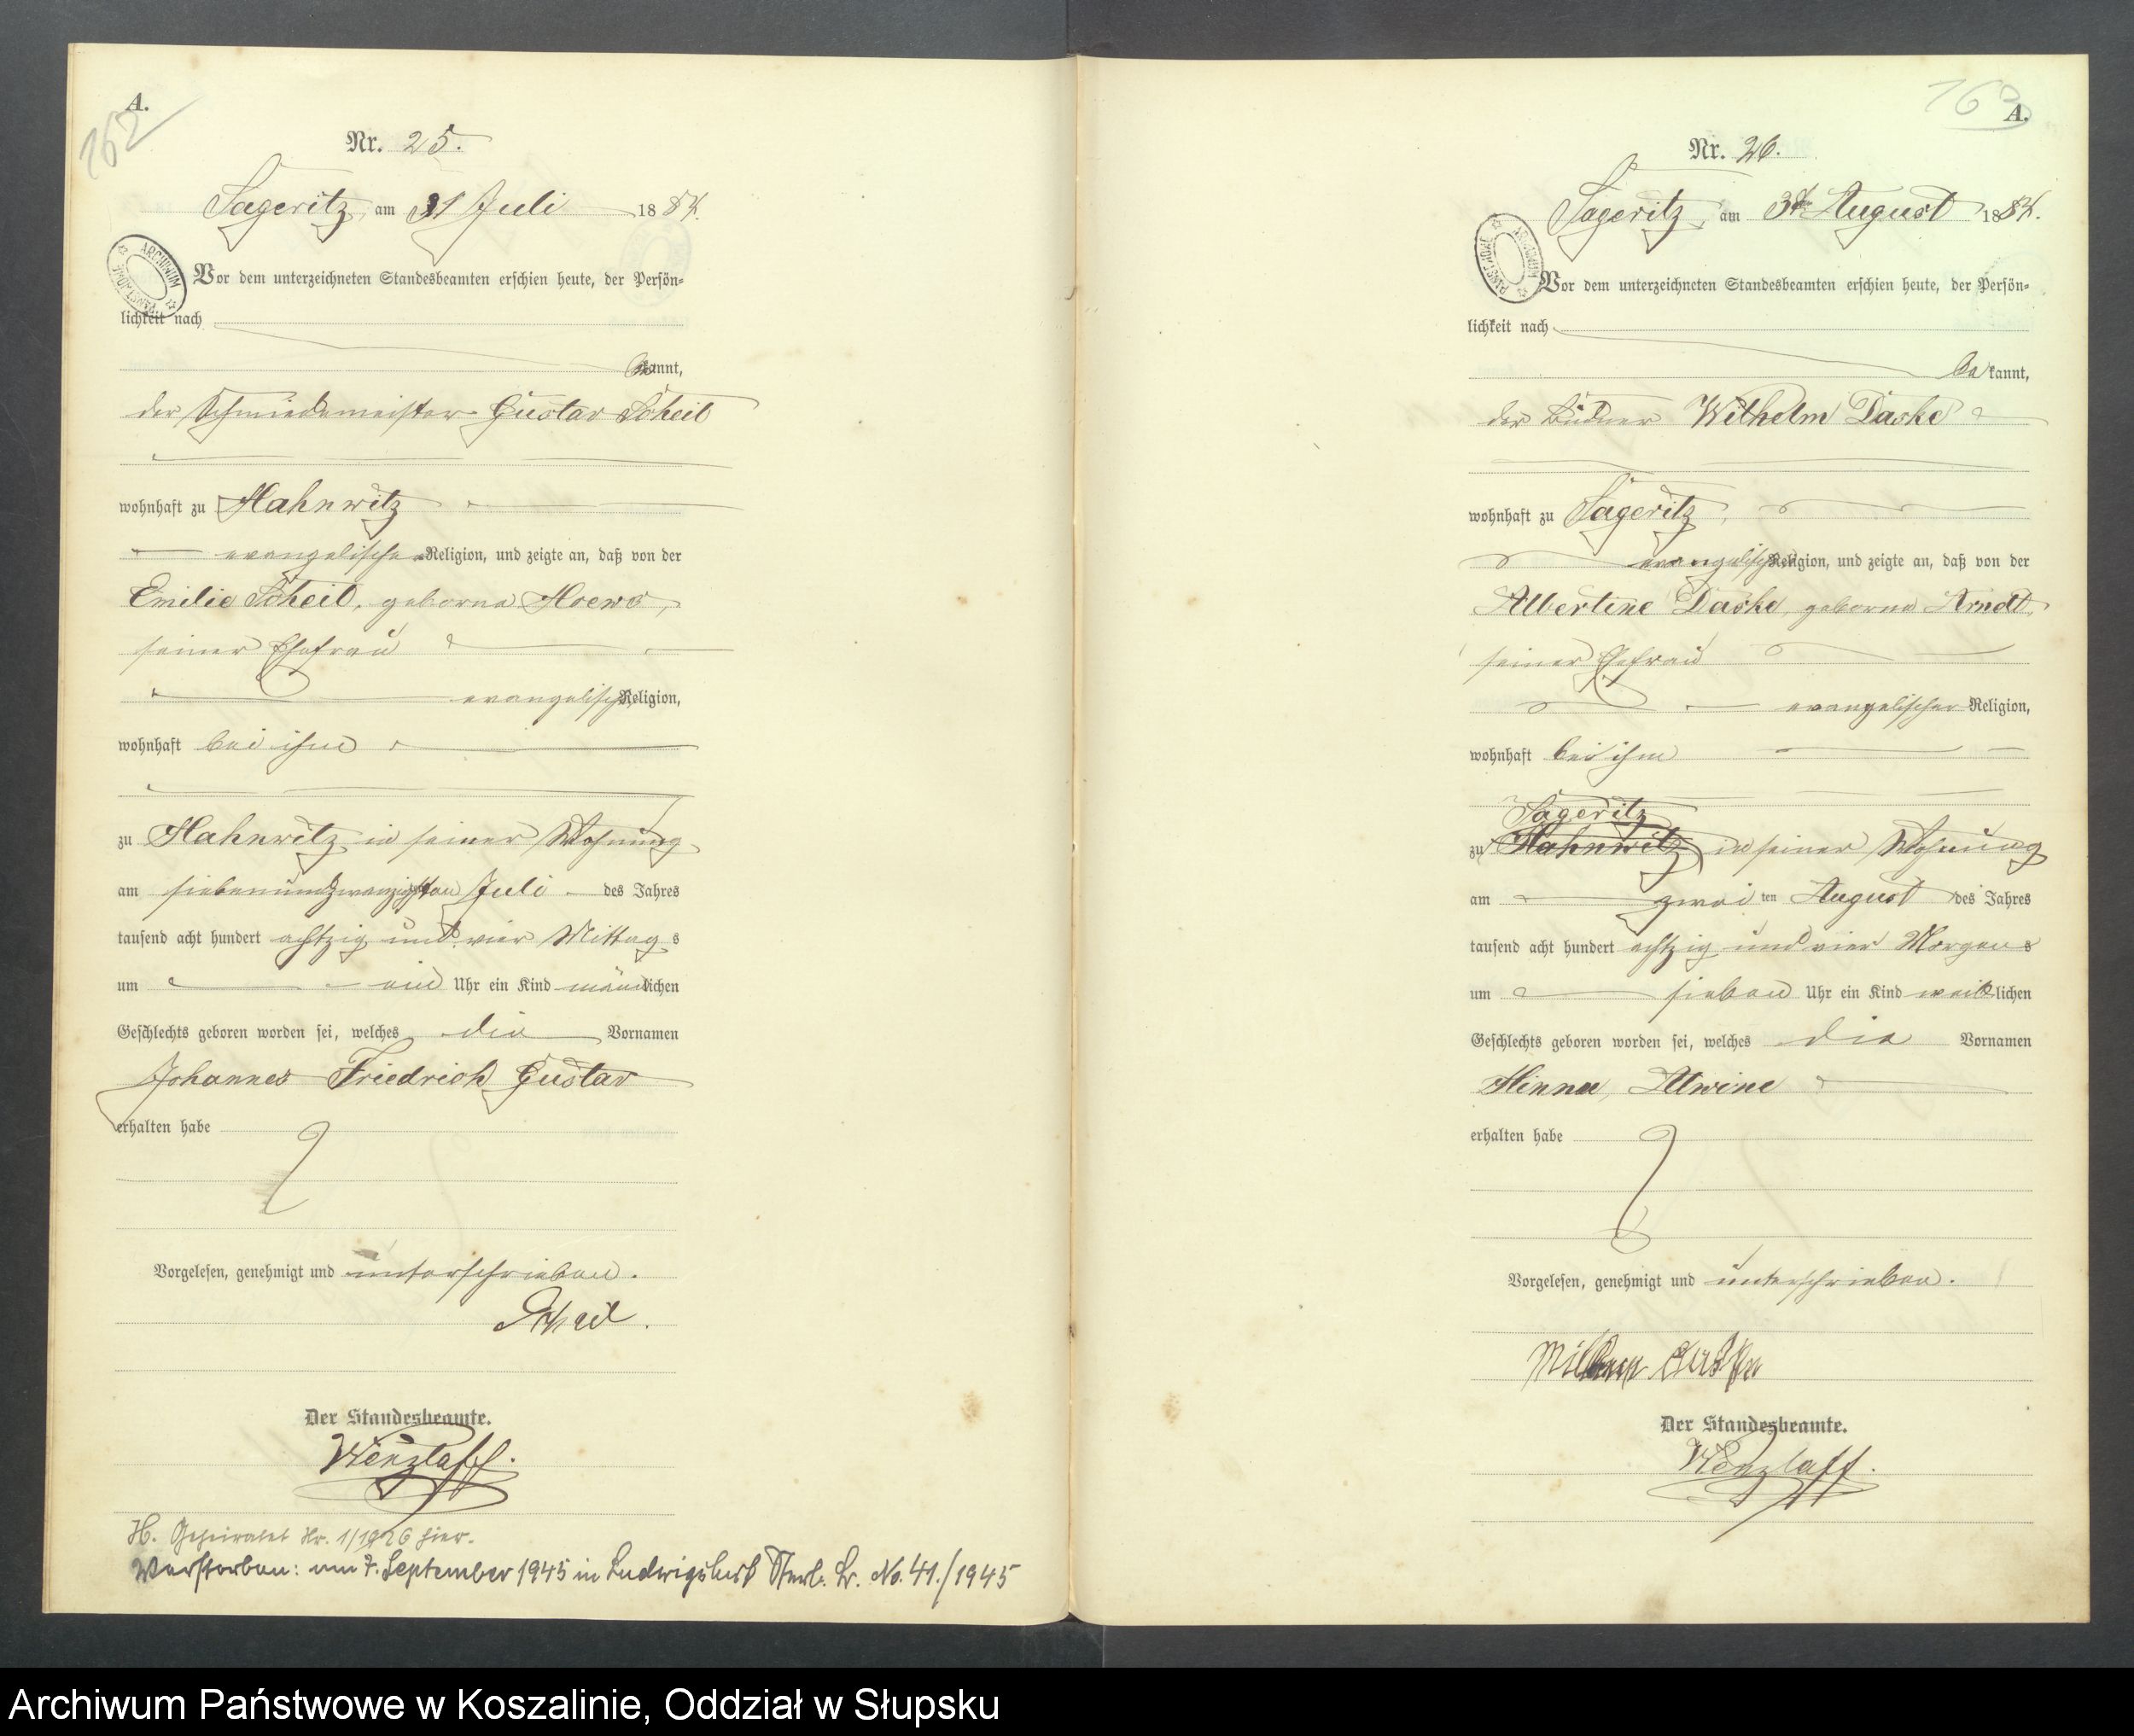 A.
162
Nr. 25.
Sageritz, am 31 Juli 1884.
ARCHIWUM PAŃSTWOWE
Vor dem unterzeichneten Standesbeamten erschien heute, der Persön-
lichkeit nach
bekannt,
der Schmiedemeister Gustav Scheil
wohnhaft zu Hahnwitz
evangelischer Religion, und zeigte an, daß von der
Emilie Scheil, geborne
seiner Ehefrau
evangelischer Religion,
wohnhaft bei ihm
zu Hahnwitz in seiner Wohnung
am siebenundzwanzigsten Juli des Jahres
tausend acht hundert achtzig und vier Mittags
um ein Uhr ein Kind männlichen
Geschlechts geboren worden sei, welches die Vornamen
Johannes Friedrich Gustav
erhalten habe
Vorgelesen, genehmigt und unterschrieben.
Scheil.
Der Standesbeamte.
Wenzlaff.
H. Geheiratet Nr. 1/1926 hier.
Verstorben: am 7. September 1945 in Ludwigslust Sterb. No. 41./1945
163
A.
Nr. 26.
Sageritz, am 3ten August 1884.
ARCHIWUM PAŃSTWOWE
Vor dem unterzeichneten Standesbeamten erschien heute, der Persön-
lichkeit nach
bekannt,
der Büdner Wilhelm Daske
wohnhaft zu Sageritz,
evangelischer Religion, und zeigte an, daß von der
Albertine Daske, geborne Arndt,
seiner Ehefrau
evangelischer Religion,
wohnhaft bei ihm
Sageritz
zu Hahnwitz in seiner Wohnung
am zweiten August des Jahres
tausend acht hundert achtzig und vier Morgens
um sieben Uhr ein Kind weiblichen
Geschlechts geboren worden sei, welches die Vornamen
Minna, Alwine
erhalten habe
Vorgelesen, genehmigt und unterschrieben.
Wilhelm Daske
Der Standesbeamte.
Wenzlaff.
Archiwum Państwowe w Koszalinie, Oddział w Słupsku